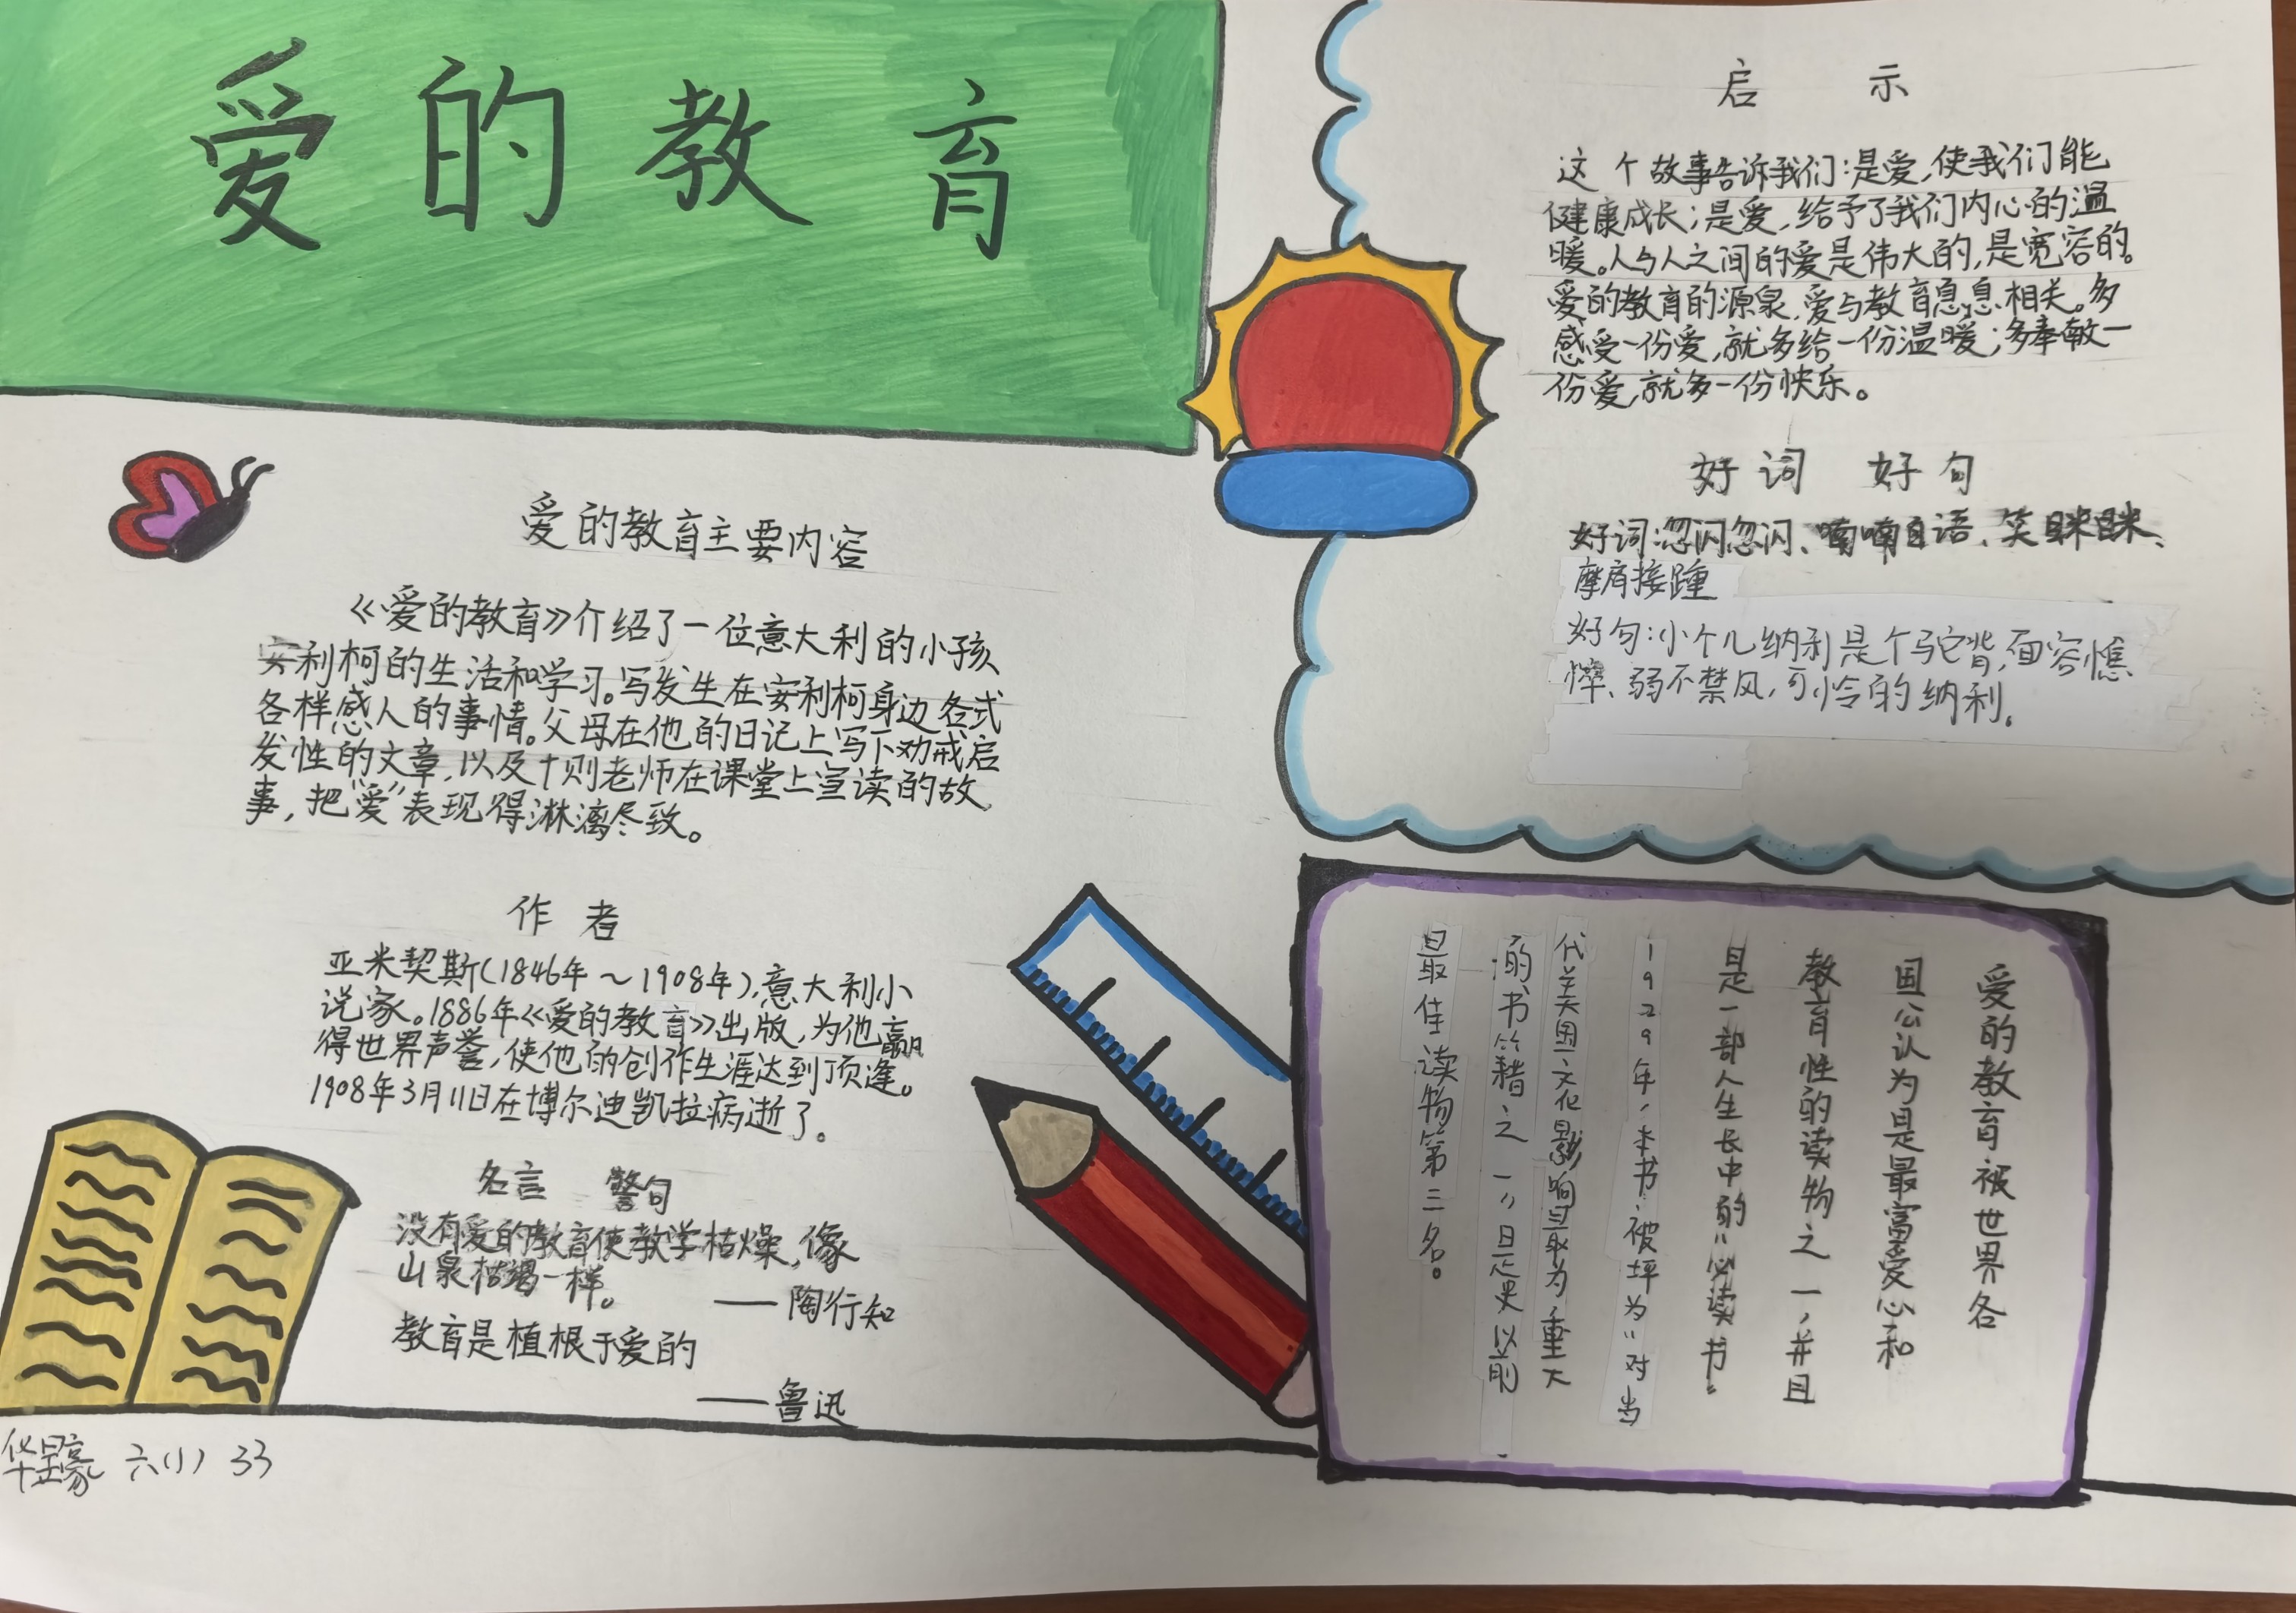 爱的教育
爱的教育主要内容
《爱的教育》介绍了一位意大利的小孩
安利柯的生活和学习。写发生在安利柯身边各式
各样感人的事情。父母在他的日记上写下劝戒启
发性的文章，以及十则老师在课堂上宣读的故
事，把“爱”表现得淋漓尽致。
作者
亚米契斯(1846年～1908年)，意大利小
说家。1886年《爱的教育》出版，为他赢
得世界声誉，使他的创作生涯达到顶逢。
1908年3月11日在博尔迪凯拉病逝了。
名言 警句
没有爱的教育使教学枯燥，像
山泉枯竭一样。
——陶行知
教育是植根于爱的
——鲁迅
六(1) 33
启示
这个故事告诉我们：是爱，使我们能
健康成长；是爱，给予了我们内心的温
暖。人与人之间的爱是伟大的，是宽容的。
爱的教育的源泉，爱与教育息息相关。多
感受一份爱，就多给一份温暖；多奉敏一
份爱，就多一份快乐。
好词 好句
好词：忽闪忽闪、喃喃自语、笑眯眯、
摩肩接踵
好句：小个儿纳利是个驼背，面容憔
悴、弱不禁风，可怜的纳利。
爱的教育被世界各
国公认为是最富爱心和
教育性的读物之一，并且
是一部人生长中的“必读书”
1929年，本书被坪为“对当
代美国文化影响最为重大
的书籍之一”且是史以前
最佳读物第三名。